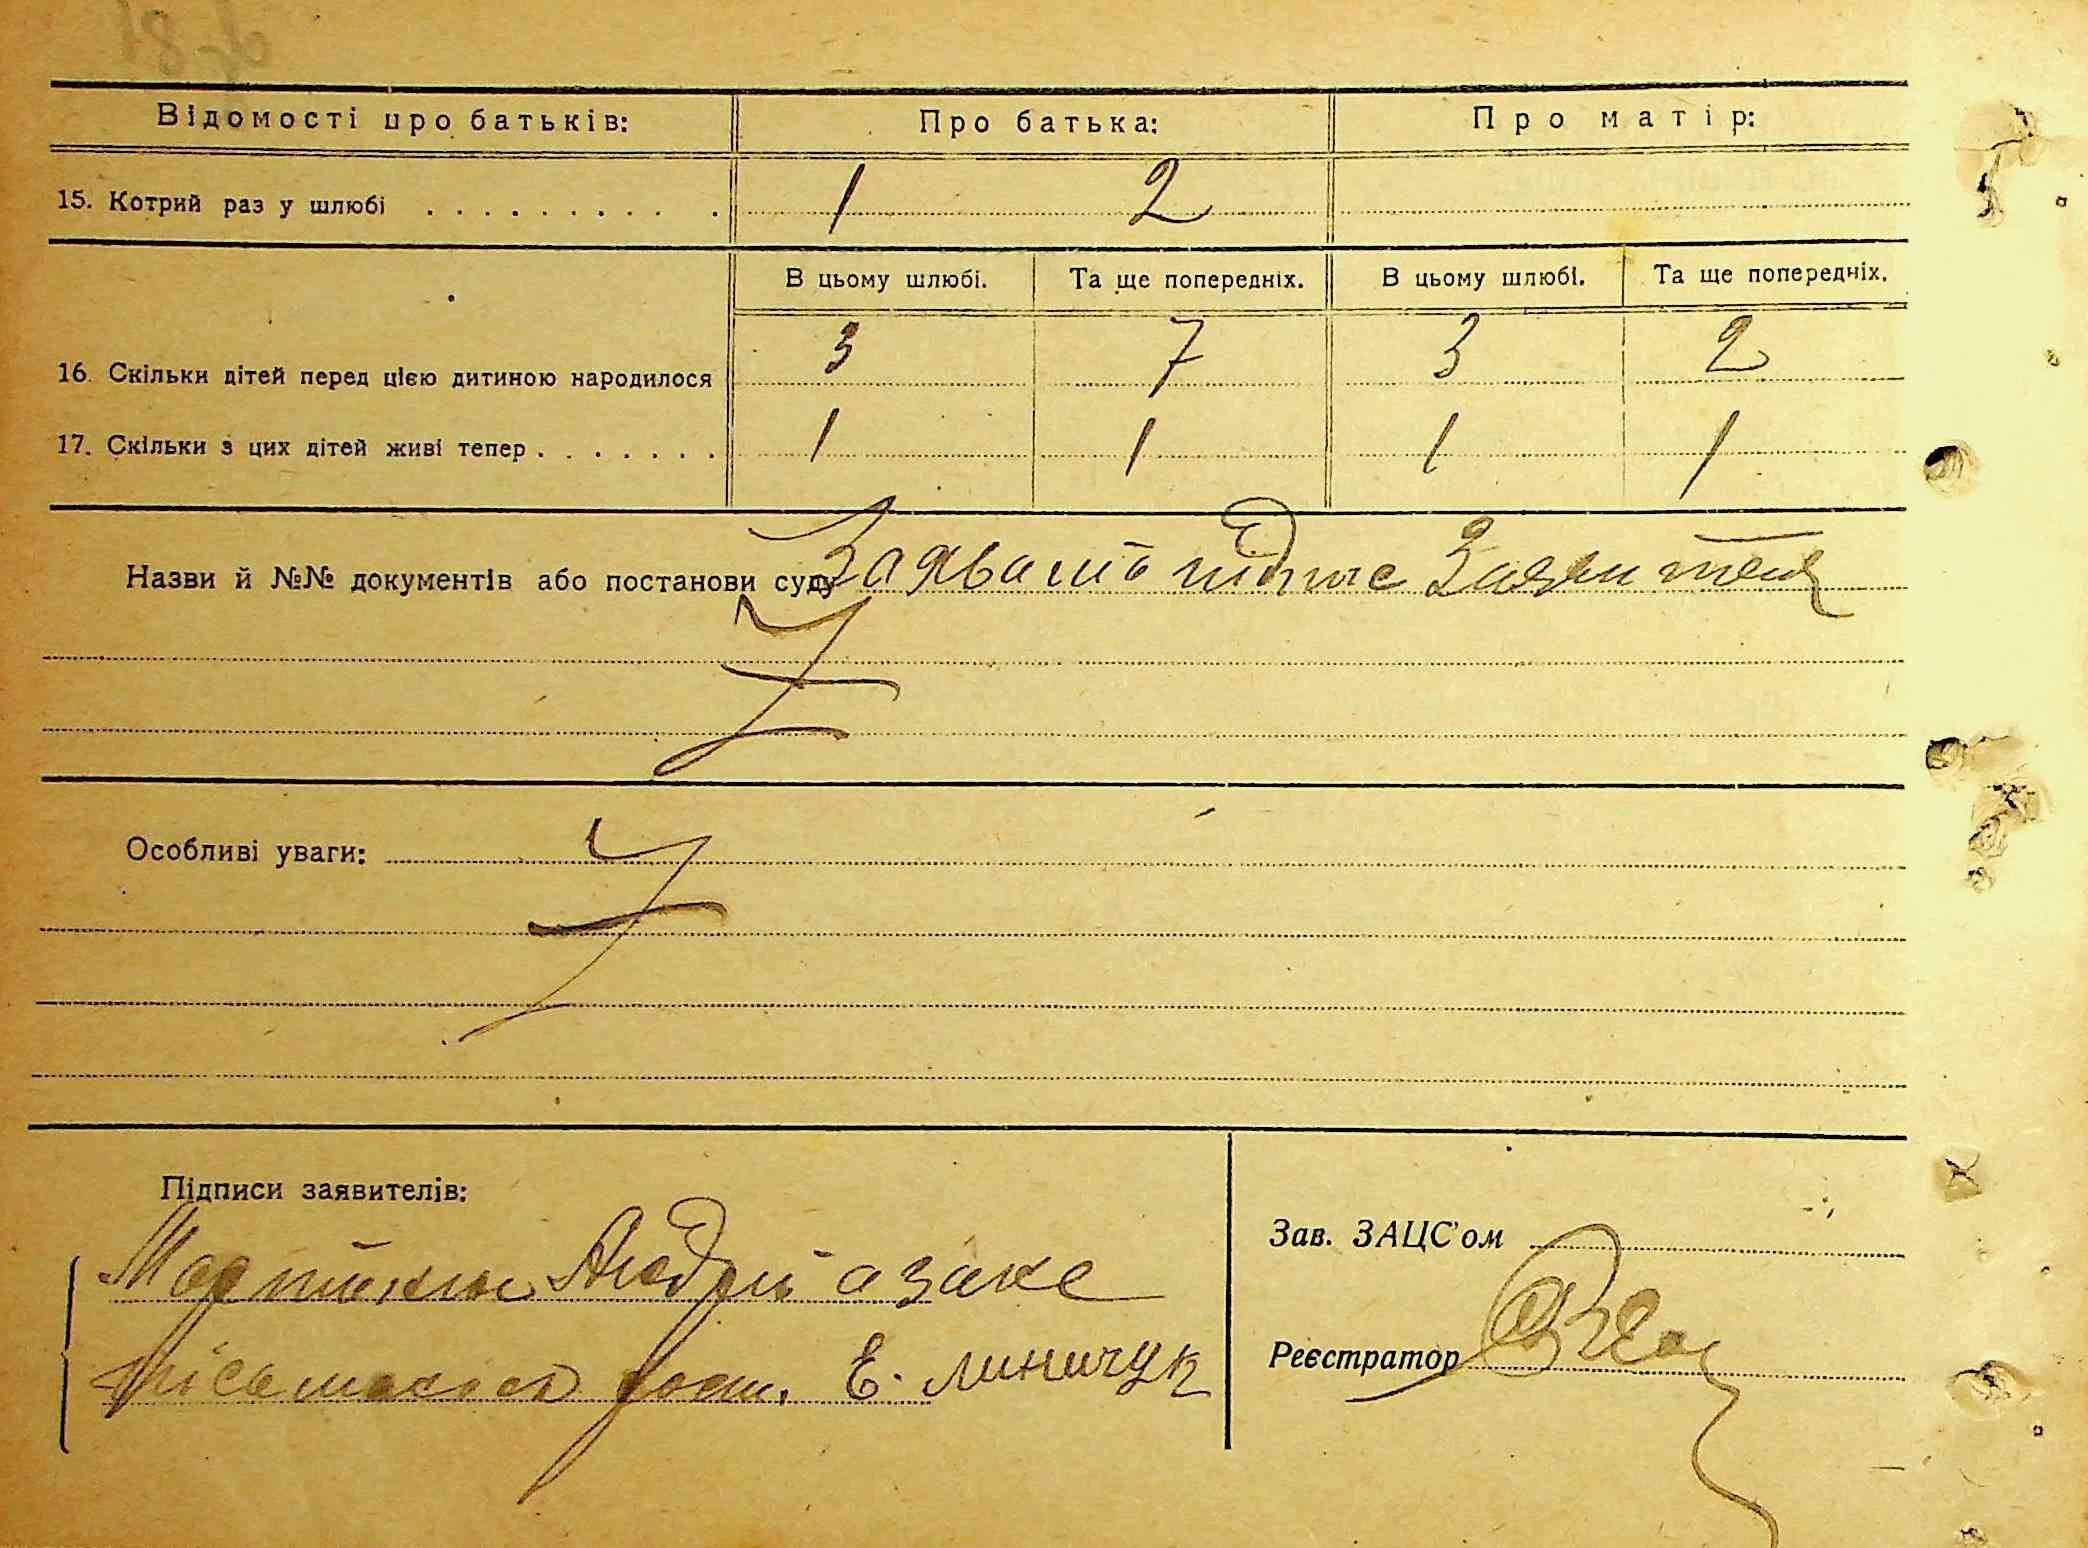 Відомості про батьків: Про батька: Про матір:
15. Котрий раз у шлюбі . . . . . . . . . . . 1 2
В цьому шлюбі. Та ще попередніх. В цьому шлюбі. Та ще попередніх.
16. Скільки дітей перед цією дитиною народилося 3 7 3 2
17. Скільки з цих дітей живі тепер . . . . . . . 1 1 1 1
Назви й №№ документів або постанови суду Заява підпис Заявителя
Особливі уваги:
Підписи заявителів:
Мартинюк Андрій а за не
Е. Линичук
Зав. ЗАЦС'ом
Реєстратор